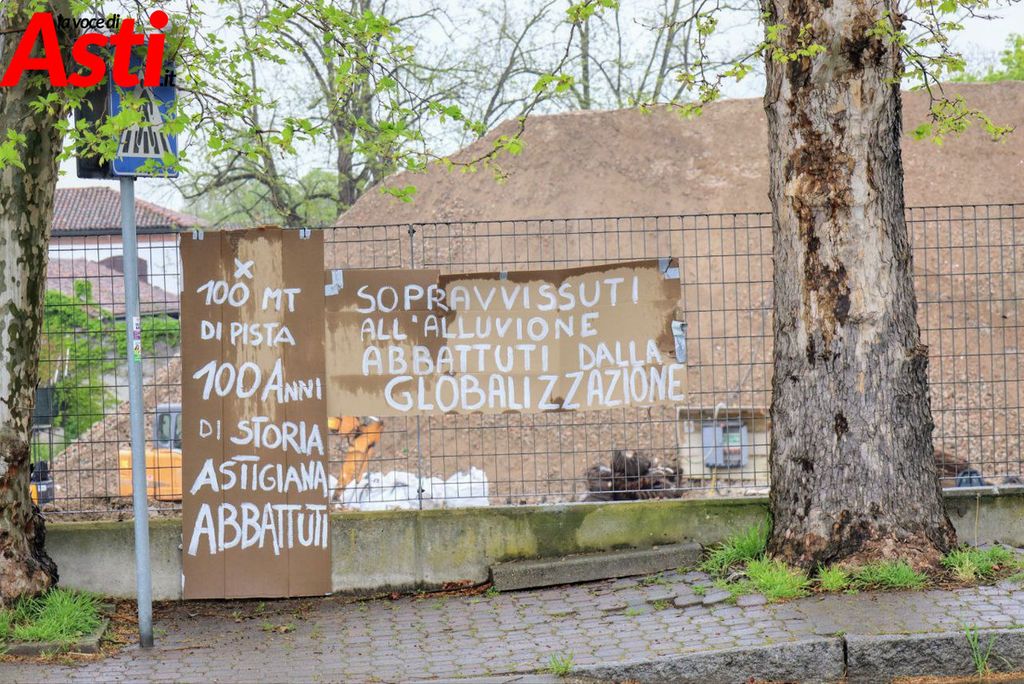 la voce di
Asti
.it
X
100 MT
DI PISTA
100 ANNI
DI STORIA
ASTIGIANA
ABBATTUTI
SOPRAVVISSUTI
ALL'ALLUVIONE
ABBATTUTI DALLA
GLOBALIZZAZIONE